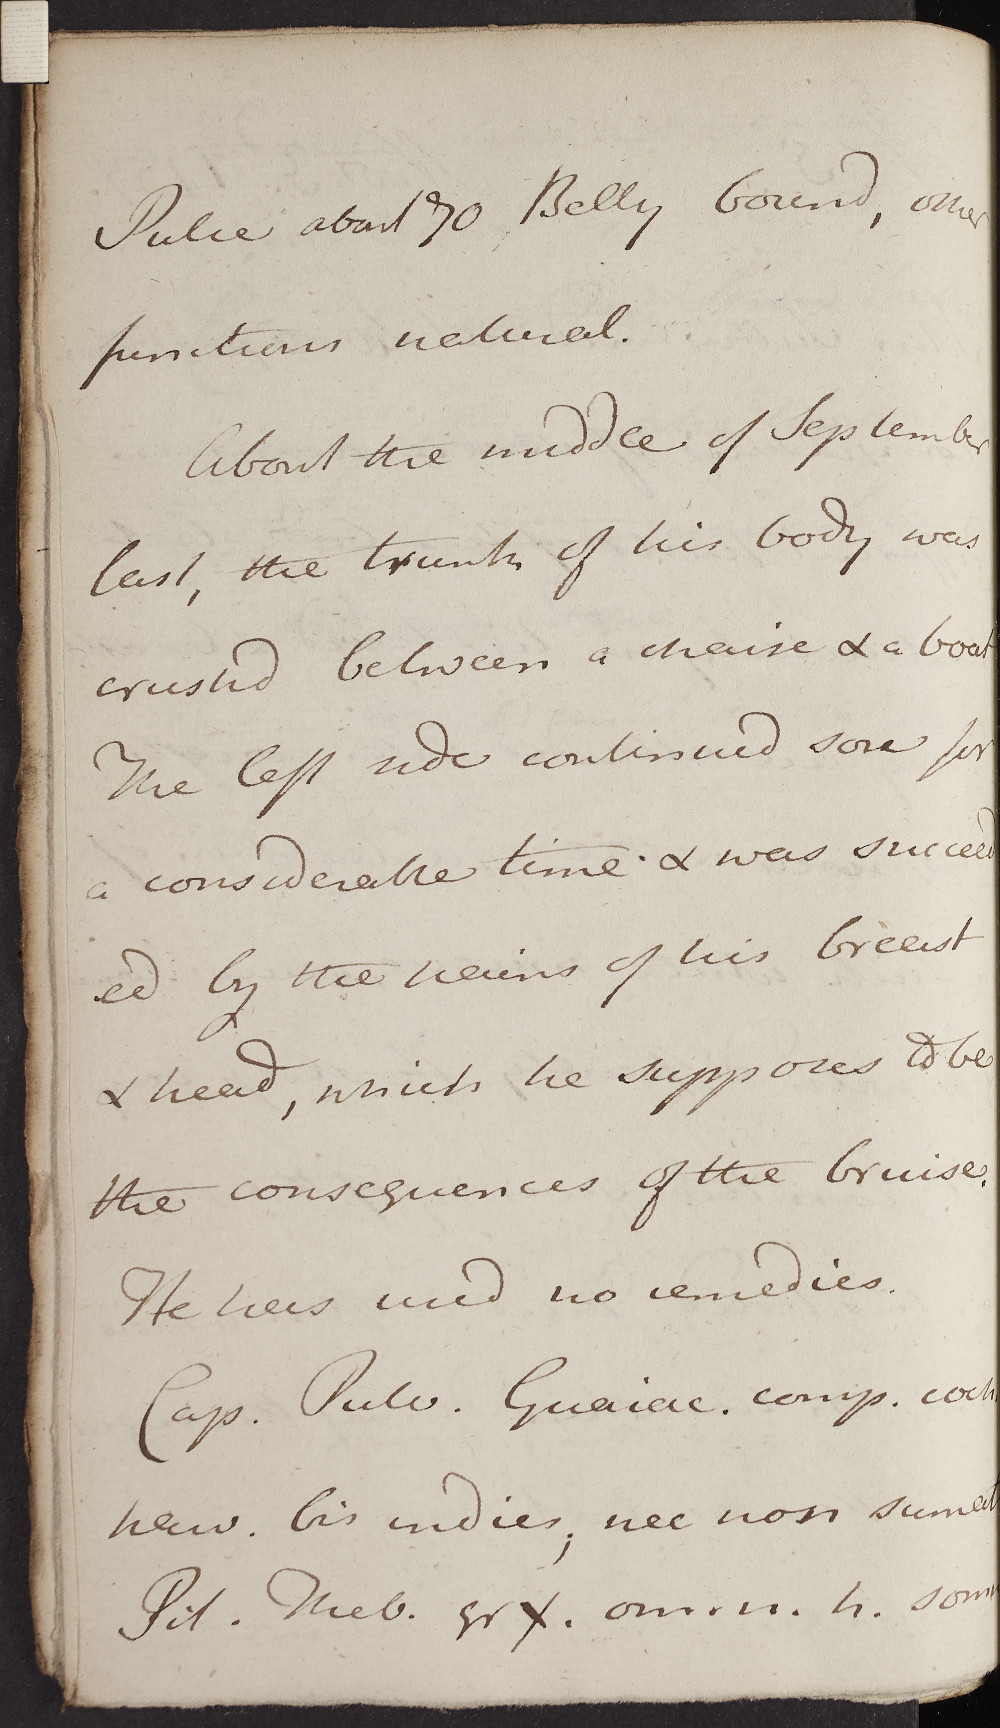 Pulse about 70 Belly bound, other
functions natural.
About the middle of September
last, the trunk of his body was
crush'd between a chaise & a boat
The left side continued sore for
a considerable time & was succeed
ed by the pains of his breast
& head, which he supposes to be
the consequences of the bruise.
He has used no remedies.
Cap. Pulv. Guaiac. comp. coch.
parv. bis indies, nec non sumat
Pil. Theb. gr x. omn. n. h. somn